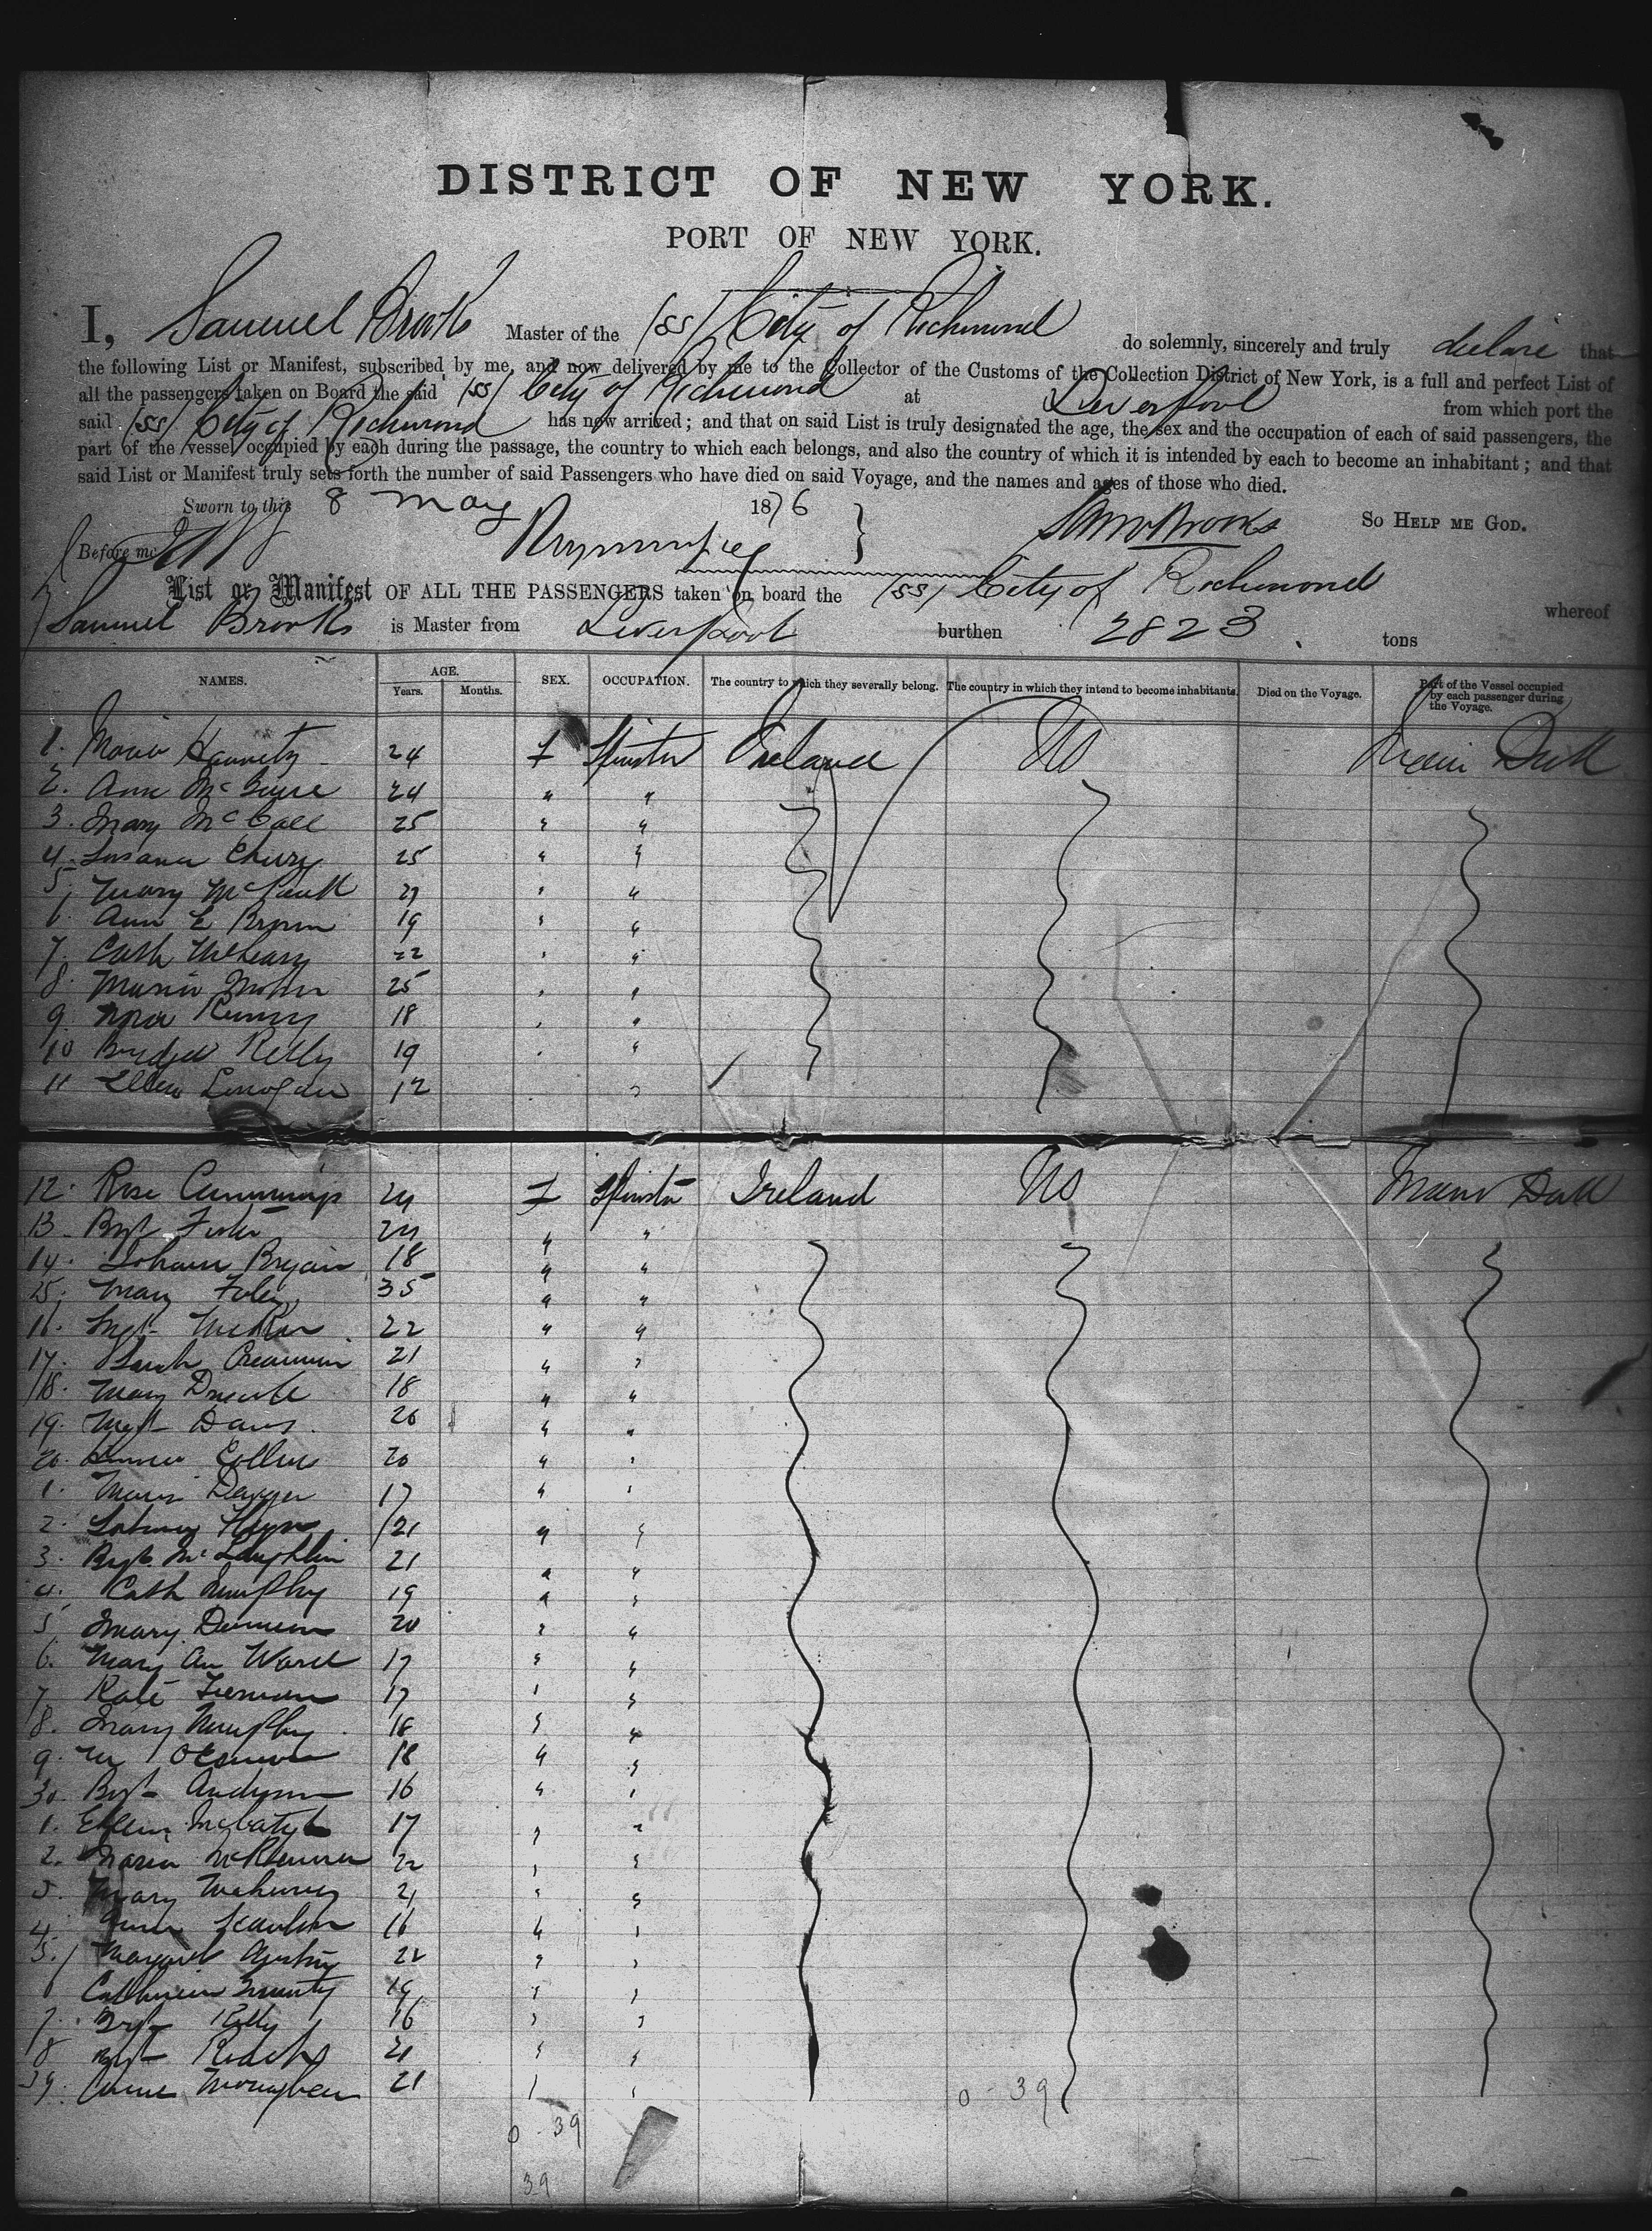 DISTRICT OF NEW YORK.
PORT OF NEW YORK.
I, Samuel Brooks Master of the (SS) City of Richmond do solemnly, sincerely and truly declare that
the following List or Manifest, subscribed by me, and now delivered by me to the Collector of the Customs of the Collection District of New York, is a full and perfect List of
all the passengers taken on Board the said (SS) City of Richmond at Liverpool from which port the
said (SS) City of Richmond has now arrived; and that on said List is truly designated the age, the sex and the occupation of each of said passengers, the
part of the vessel occupied by each during the passage, the country to which each belongs, and also the country of which it is intended by each to become an inhabitant; and that
said List or Manifest truly sets forth the number of said Passengers who have died on said Voyage, and the names and ages of those who died.
Sworn to this 8 May 1876 Saml Brooks So HELP ME GOD.
Before me
List or Manifest OF ALL THE PASSENGERS taken on board the (SS) City of Richmond whereof
Samuel Brooks is Master from Liverpool burthen 2823 tons
NAMES. AGE. Years. Months. SEX. OCCUPATION. The country to which they severally belong. The country in which they intend to become inhabitants. Died on the Voyage. Part of the Vessel occupied by each passenger during the Voyage.
1. Maria 24 F Spinster Ireland US Main Deck
2. Ann McGuire 24 " "
3. Mary McCall 25 " "
4. Susana Cherry 25 " "
5. Mary 21 " "
6. Ann E Brown 19 " "
7. Cath McLeary 22 " "
8. Maria 25 " "
9. Nora Kenny 18 " "
10 Bridget Kelly 19 " "
11 Ellen 12 "
12. Rose Cummings 24 F Spinster Ireland US Main Deck
13. Bgt 24 " "
14. Johana Bryan 18 " "
15. Mary Foley 35 " "
16. Mgt 22 " "
17. Sarah 21 " "
18. Mary 18 " "
19. Mgt Davis 20 " "
20. Collins 20 " "
1. Maria 17 " "
2. 21 " "
3. Bgt. McLaughlin 21 " "
4. Cath Murphy 19 " "
5 Mary 20 " "
6. Mary An Ward 17 " "
7 Kate 17 " "
8. Mary Murphy 18 " "
9. M 18 " "
30. Bgt Anderson 16 " "
1. Ellen 17 " "
2. Maria McKenna 22 " "
3. Mary 21 " "
4. Scanlon 16 " "
5. Margaret 22 " "
6 Catherine 19 " "
7. Bgt Kelly 16 " "
8 Bgt 21 " "
39. Monaghan 21 " "
0 - 39 0 - 39
39